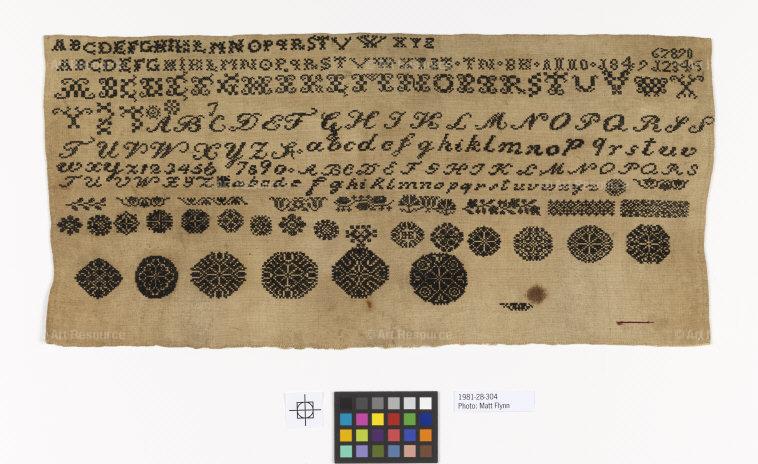 ABCDEFGHIKLMNOPQRSTVWXYZ
67890
ABCDEFGHIKLMNOPQRSTVWXYZ
12345
ABCDEFGHIKLMNOPQRSTUVWX
YZ
7
ABCDEFGHIKLMNOPQRSS
TUVWXYZ&abcdefghiklmnopqrstuv
wxyz123456 7890 ABCDEFGHIKLMNOPQRS
TUVWXYZ abcdefghiklmnopqrstuvwxyz
Art Resource
© Art Resource
© Art R
1981-28-304
Photo: Matt Flynn